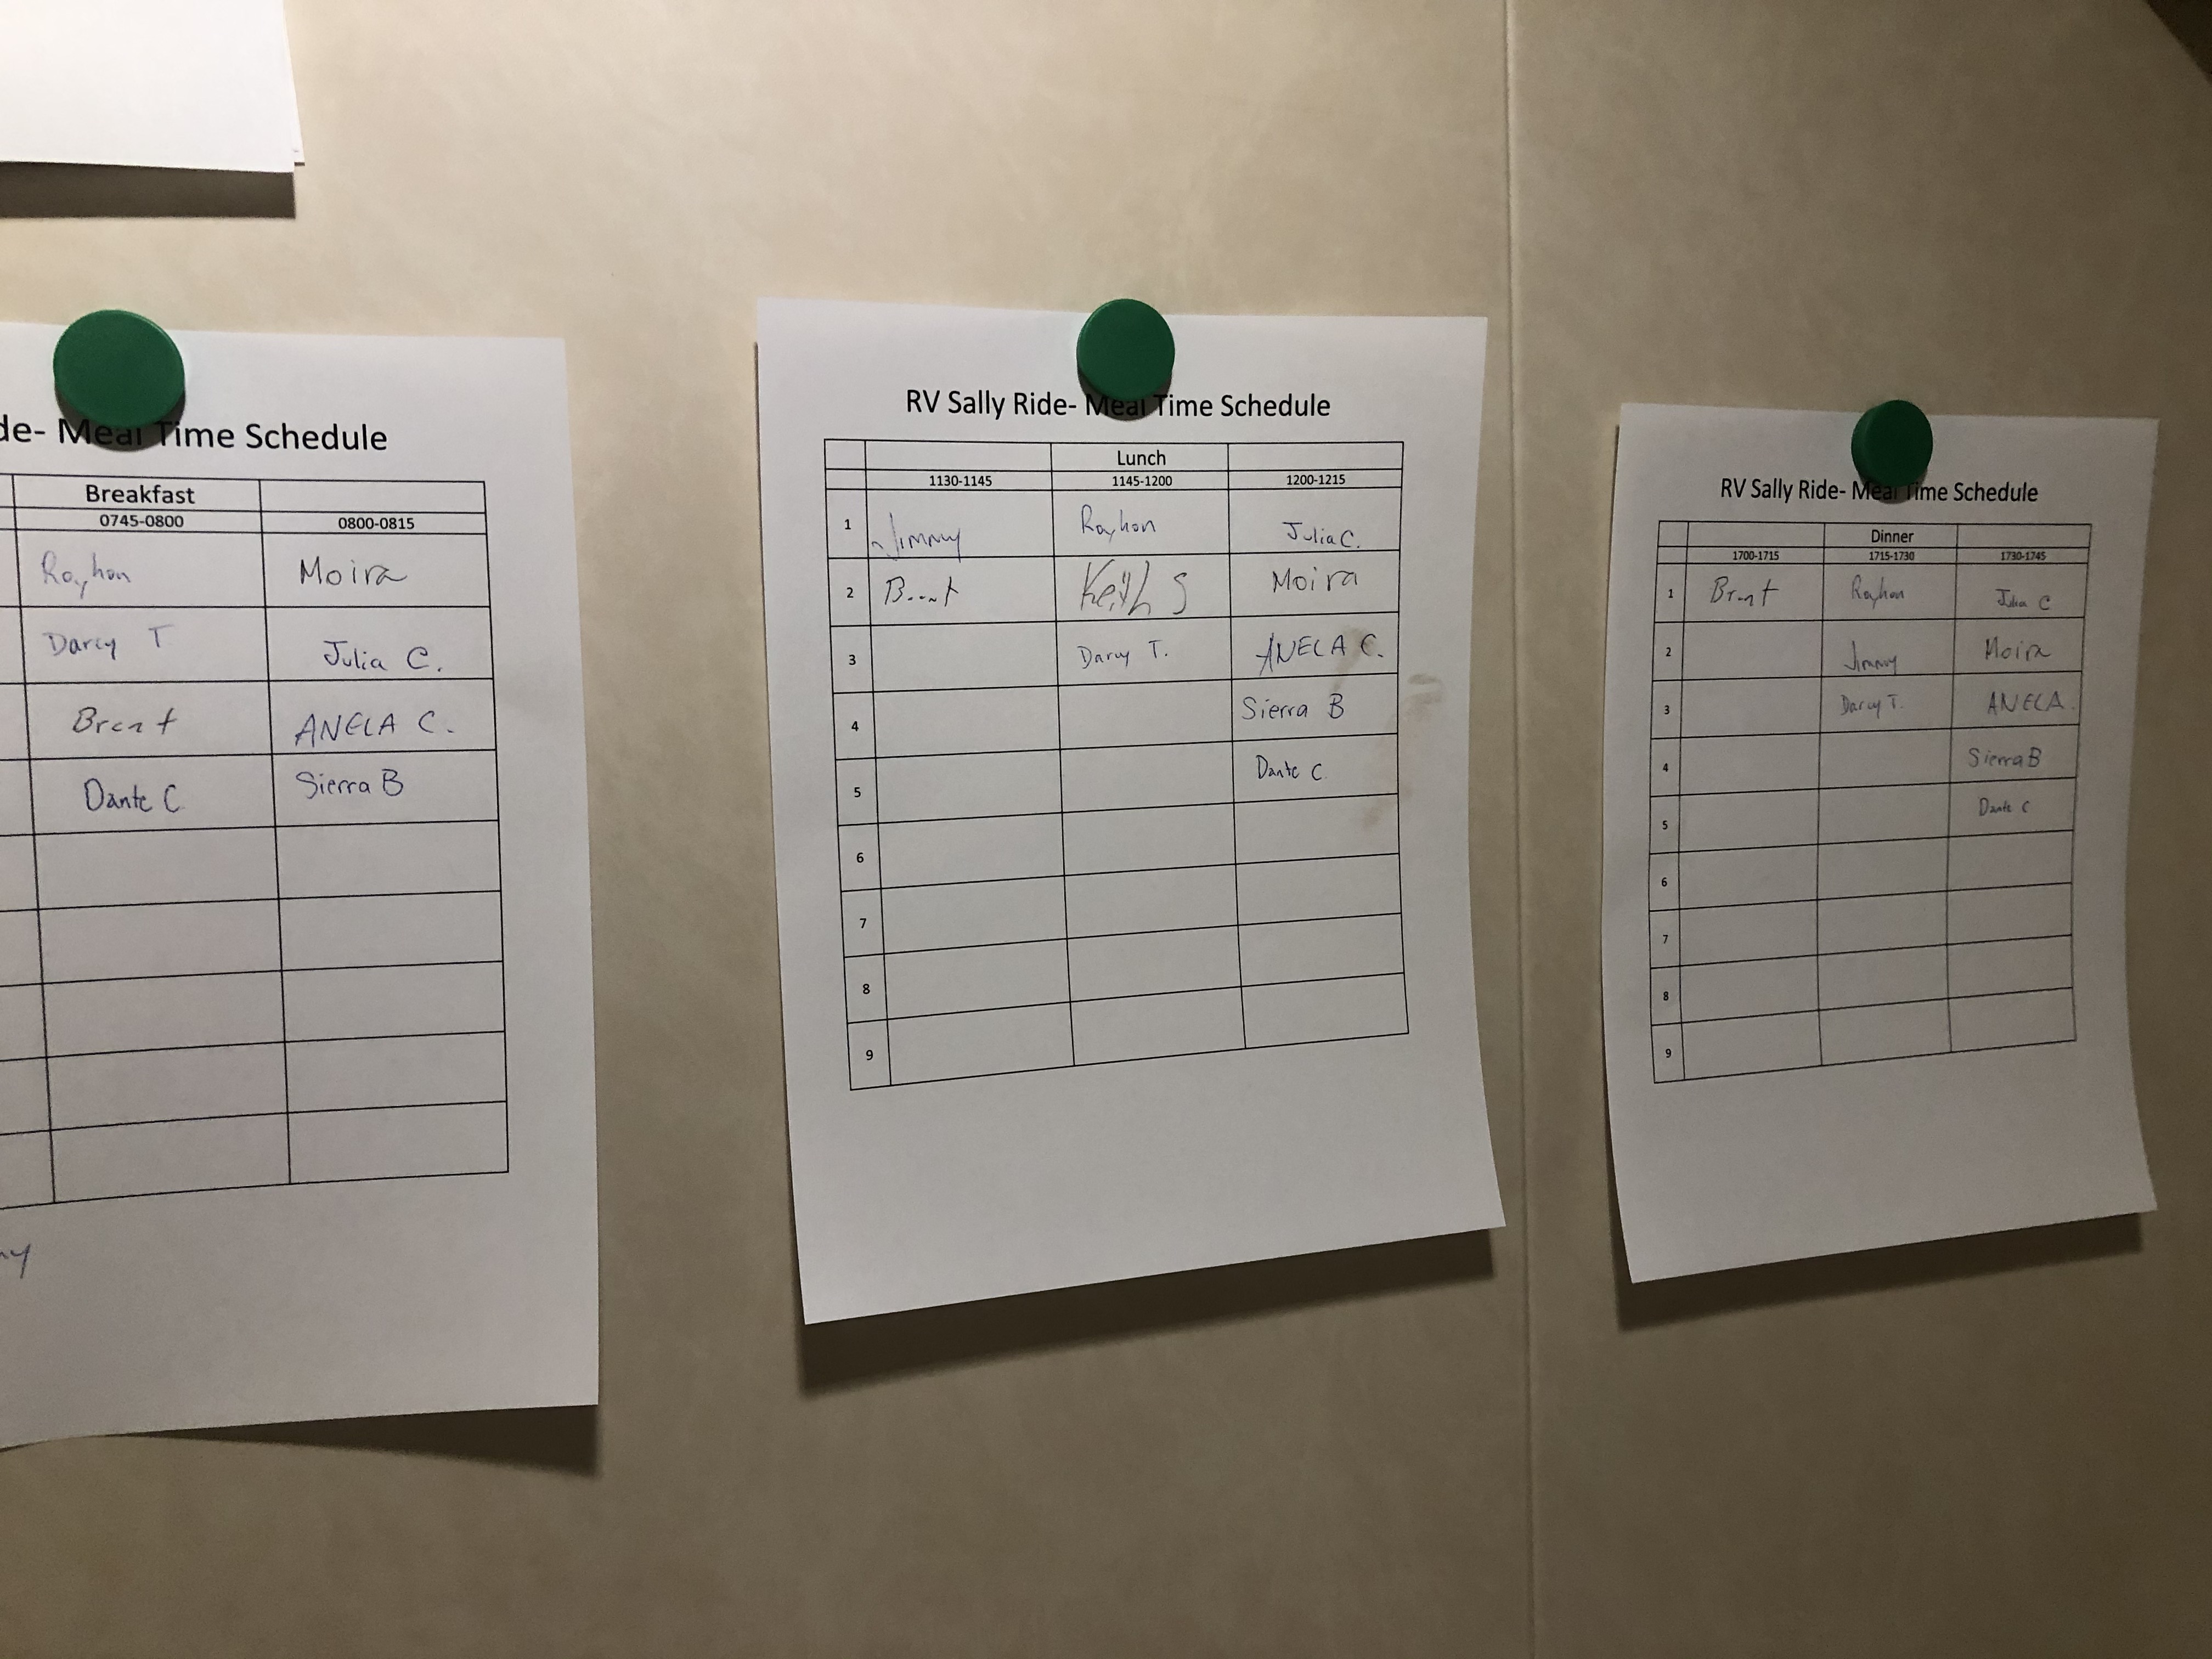 de- Meal Time Schedule
Breakfast
0745-0800 0800-0815
Rayhan Moira
Darcy T Julia C.
Brent ANELA C.
Dante C Sierra B
RV Sally Ride- Meal Time Schedule
Lunch
1130-1145 1145-1200 1200-1215
1 Jimmy Rayhan Julia C.
2 Brent Keith S Moira
3 Darcy T. ANELA C.
4 Sierra B
5 Dante C
6
7
8
9
RV Sally Ride- Meal Time Schedule
Dinner
1700-1715 1715-1730 1730-1745
1 Brent Rayhan Julia C
2 Jimmy Moira
3 Darcy T. ANELA
4 Sierra B
5 Dante C
6
7
8
9